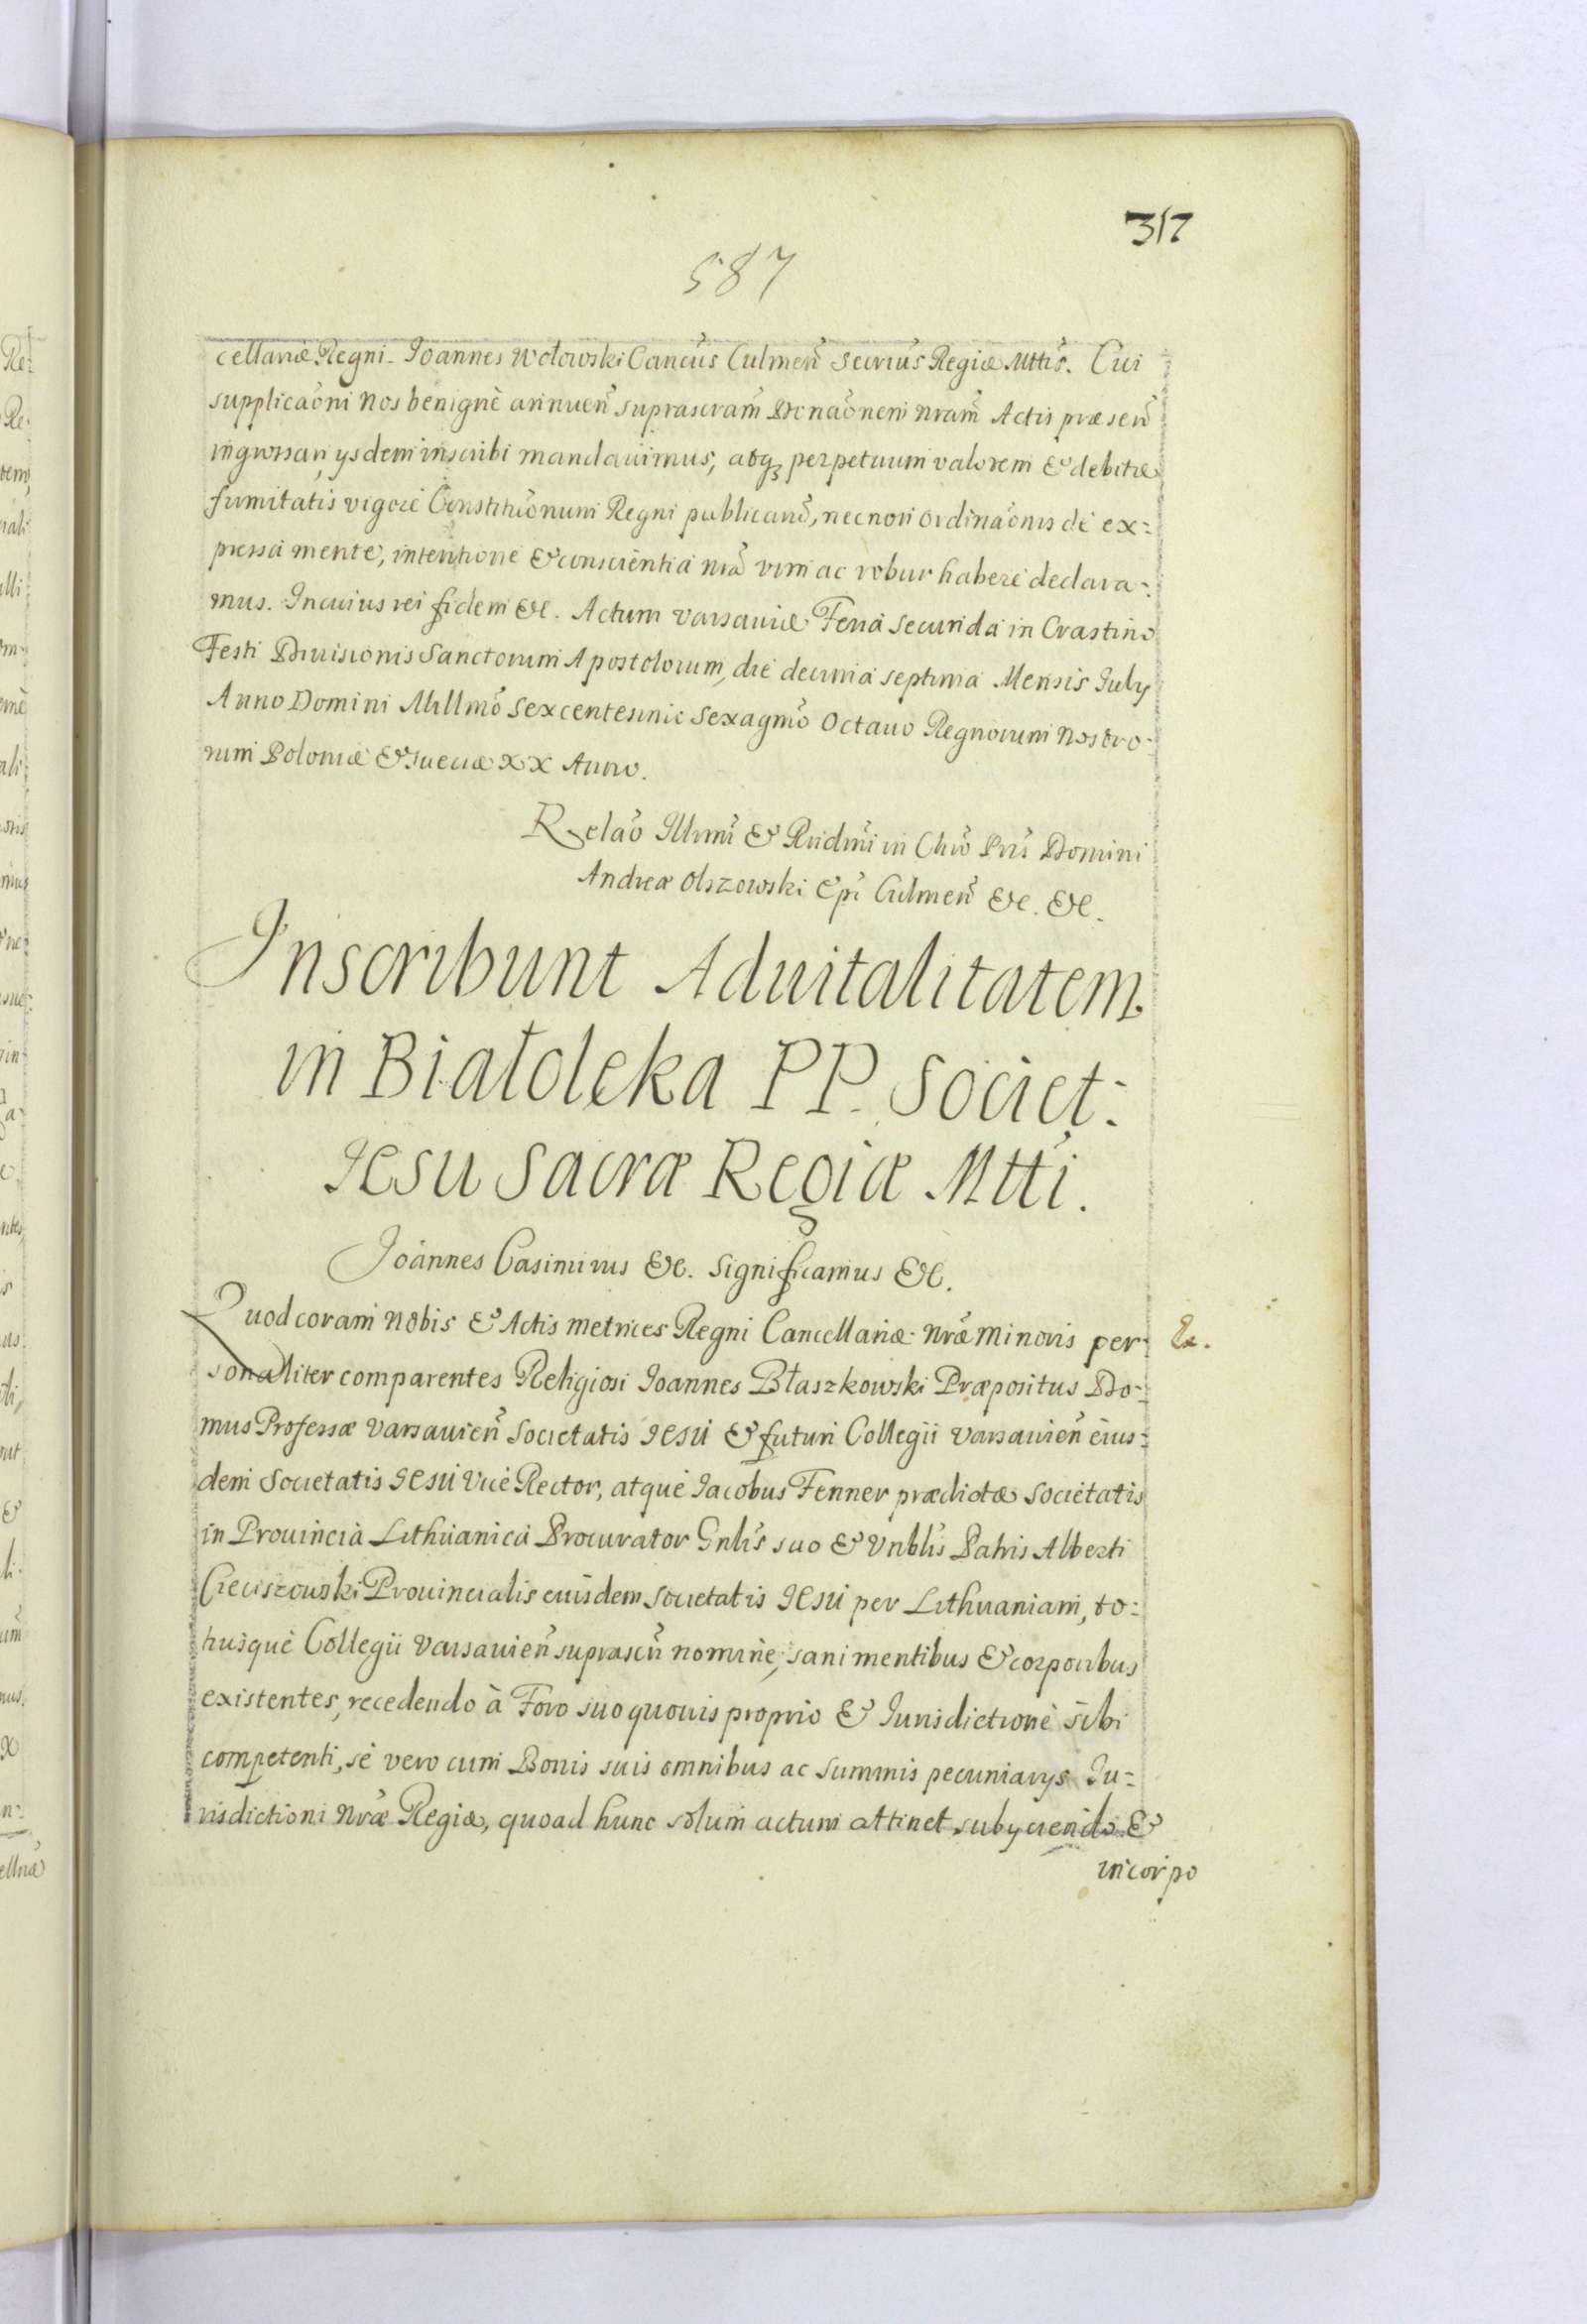 317
587
cellariæ Regni. Ioannes Wołowski Cancus̃ Culmeñ Secrius̃ Regiæ Mttis̃. Cui
supplicaõni nos benignè annueñ suprascram̃ Donaõnem nram̃ Actis præseñ
ingrossari, ysdem inscribi mandavimus, atq₃ perpetuum valorem & debitæ
firmitatis vigore Constituõnum Regni publicand̃, necnon ordinaõnis de ex=
pressa mente, intentione & conscientia nrã vim ac robur habere declara=
mus. In cuius rei fidem &c. Actum Varsaviæ Feria Secunda in Crastino
Festi Divisionis Sanctorum Apostolorum, die decima septima Mensis July
Anno Domini Millmõ Sexcentesimo Sexagmõ Octavo Regnorum Nostro-
rum Poloniæ & Sueciæ XX Anno.
Relaõ Illrmĩ & Rndmĩ in Chrõ Pris̃ Domini
Andreæ Olszowski Epĩ Culmeñ &c. &c.
Inscribunt Aduitalitatem
in Białołęka PP. Societ:
Iesu Sacræ Regiæ Mtti.
Ioannes Casimirus &c. Significamus &c.
Quod coram nobis & Actis metrices Regni Cancellariæ nræ̃ Minoris per=
sonaliter comparentes Religiosi Ioannes Błaszkowski Præpositus Do=
mus Professæ Varsavieñ Societatis IESU & futuri Collegii Varsavieñ eius=
dem Societatis IESU Vice Rector, atque Iacobus Fenner prædictæ Societatis
in Provincia Lithuanica Procurator Gnlis̃ suo & Vnblis̃ Patris Alberti
Cieciszowski Provincialis eiusdem Societatis IESU per Lithuaniam, to=
tiusque Collegii Varsavieñ suprascrĩ nomine, sani mentibus & corporibus
existentes, recedendo à Foro suo quovis proprio & Iurisdictione sibi
competenti, se vero cum Bonis suis omnibus ac summis pecuniarys Iu=
risdictioni nræ̃ Regiæ, quoad hunc solum actum attinet subyciendo &
incorpo